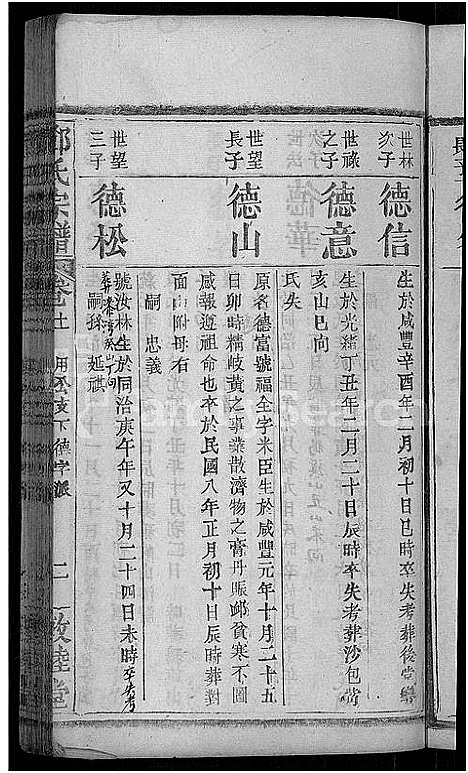 世林
次子
德信
生於咸豐辛酉年二月初十日巳時卒失考葬後堂
世祿
之子
德意
生於光緒丁丑年二月二十日辰時卒失考葬沙包嵜
亥山巳向
氏失
世望
長子
德山
原名德富號福全字米臣生於咸豐元年十月二十五
日卯時精岐黃之事業散濟物之膏丹賑鄰貧寒不圖
咸報遵祖命也卒於民國八年正月初十日辰時葬對
面山附母右
嗣 忠義
世望
三子
德松
號汝林生於同治庚午年又十月二十四日未時卒失考
嗣孫 延祺
氏宗譜
下德字派
二
敦睦堂